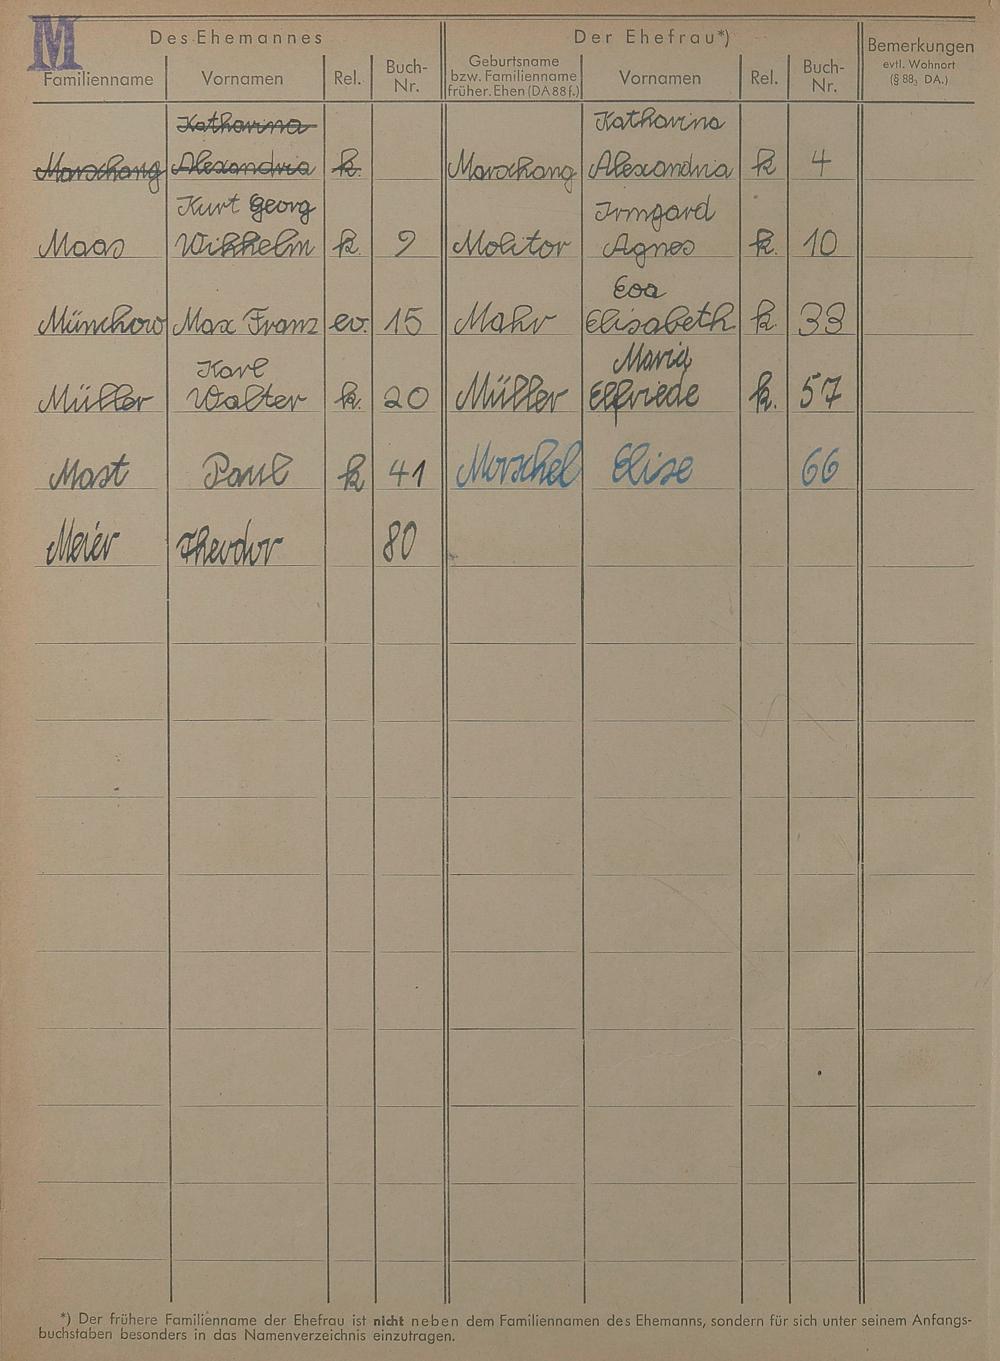 M
Des Ehemannes
Der Ehefrau*)
Bemerkungen
evtl. Wohnort
(§ 88₃ DA.)
Familienname
Vornamen
Rel.
Buch-
Nr.
Geburtsname
bzw. Familienname
früher. Ehen (DA 88 f.)
Vornamen
Rel.
Buch-
Nr.
Katharina
Katharina
Marschang Alexandria k. Marschang Alexandria k 4
Kurt Georg
Irmgard
Maas Wilhelm k. 9 Molitor Agnes k. 10
Eva
Münchow Max Franz ev. 15 Mahr Elisabeth k. 33
Karl
Maria
Müller Walter k. 20 Müller Elfriede k. 57
Mast Paul k 41 Morschel Elise 66
Meier Theodor 80
*) Der frühere Familienname der Ehefrau ist nicht neben dem Familiennamen des Ehemanns, sondern für sich unter seinem Anfangs-
buchstaben besonders in das Namenverzeichnis einzutragen.